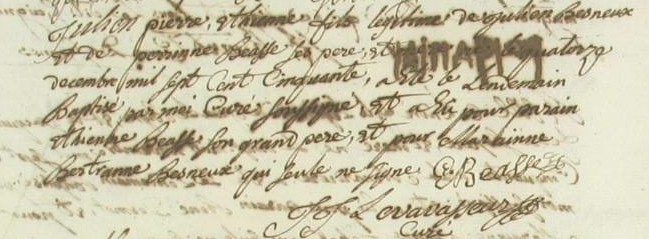 Julien pierre, Ethienne fils legitime de Julien Besneux
et de perrinne Beasse ses pere, et quatorze
decembre mil sept Cent Cinquante, a Eté le Lendemain
Baptisé par moi Curé soussigné, Et a Eu pour parain
Ethienne Beasse son grand pere, Et pour Marainne
Bertranne Besneux qui seule ne signe E. Beasse
J J Levavasseur
Curé